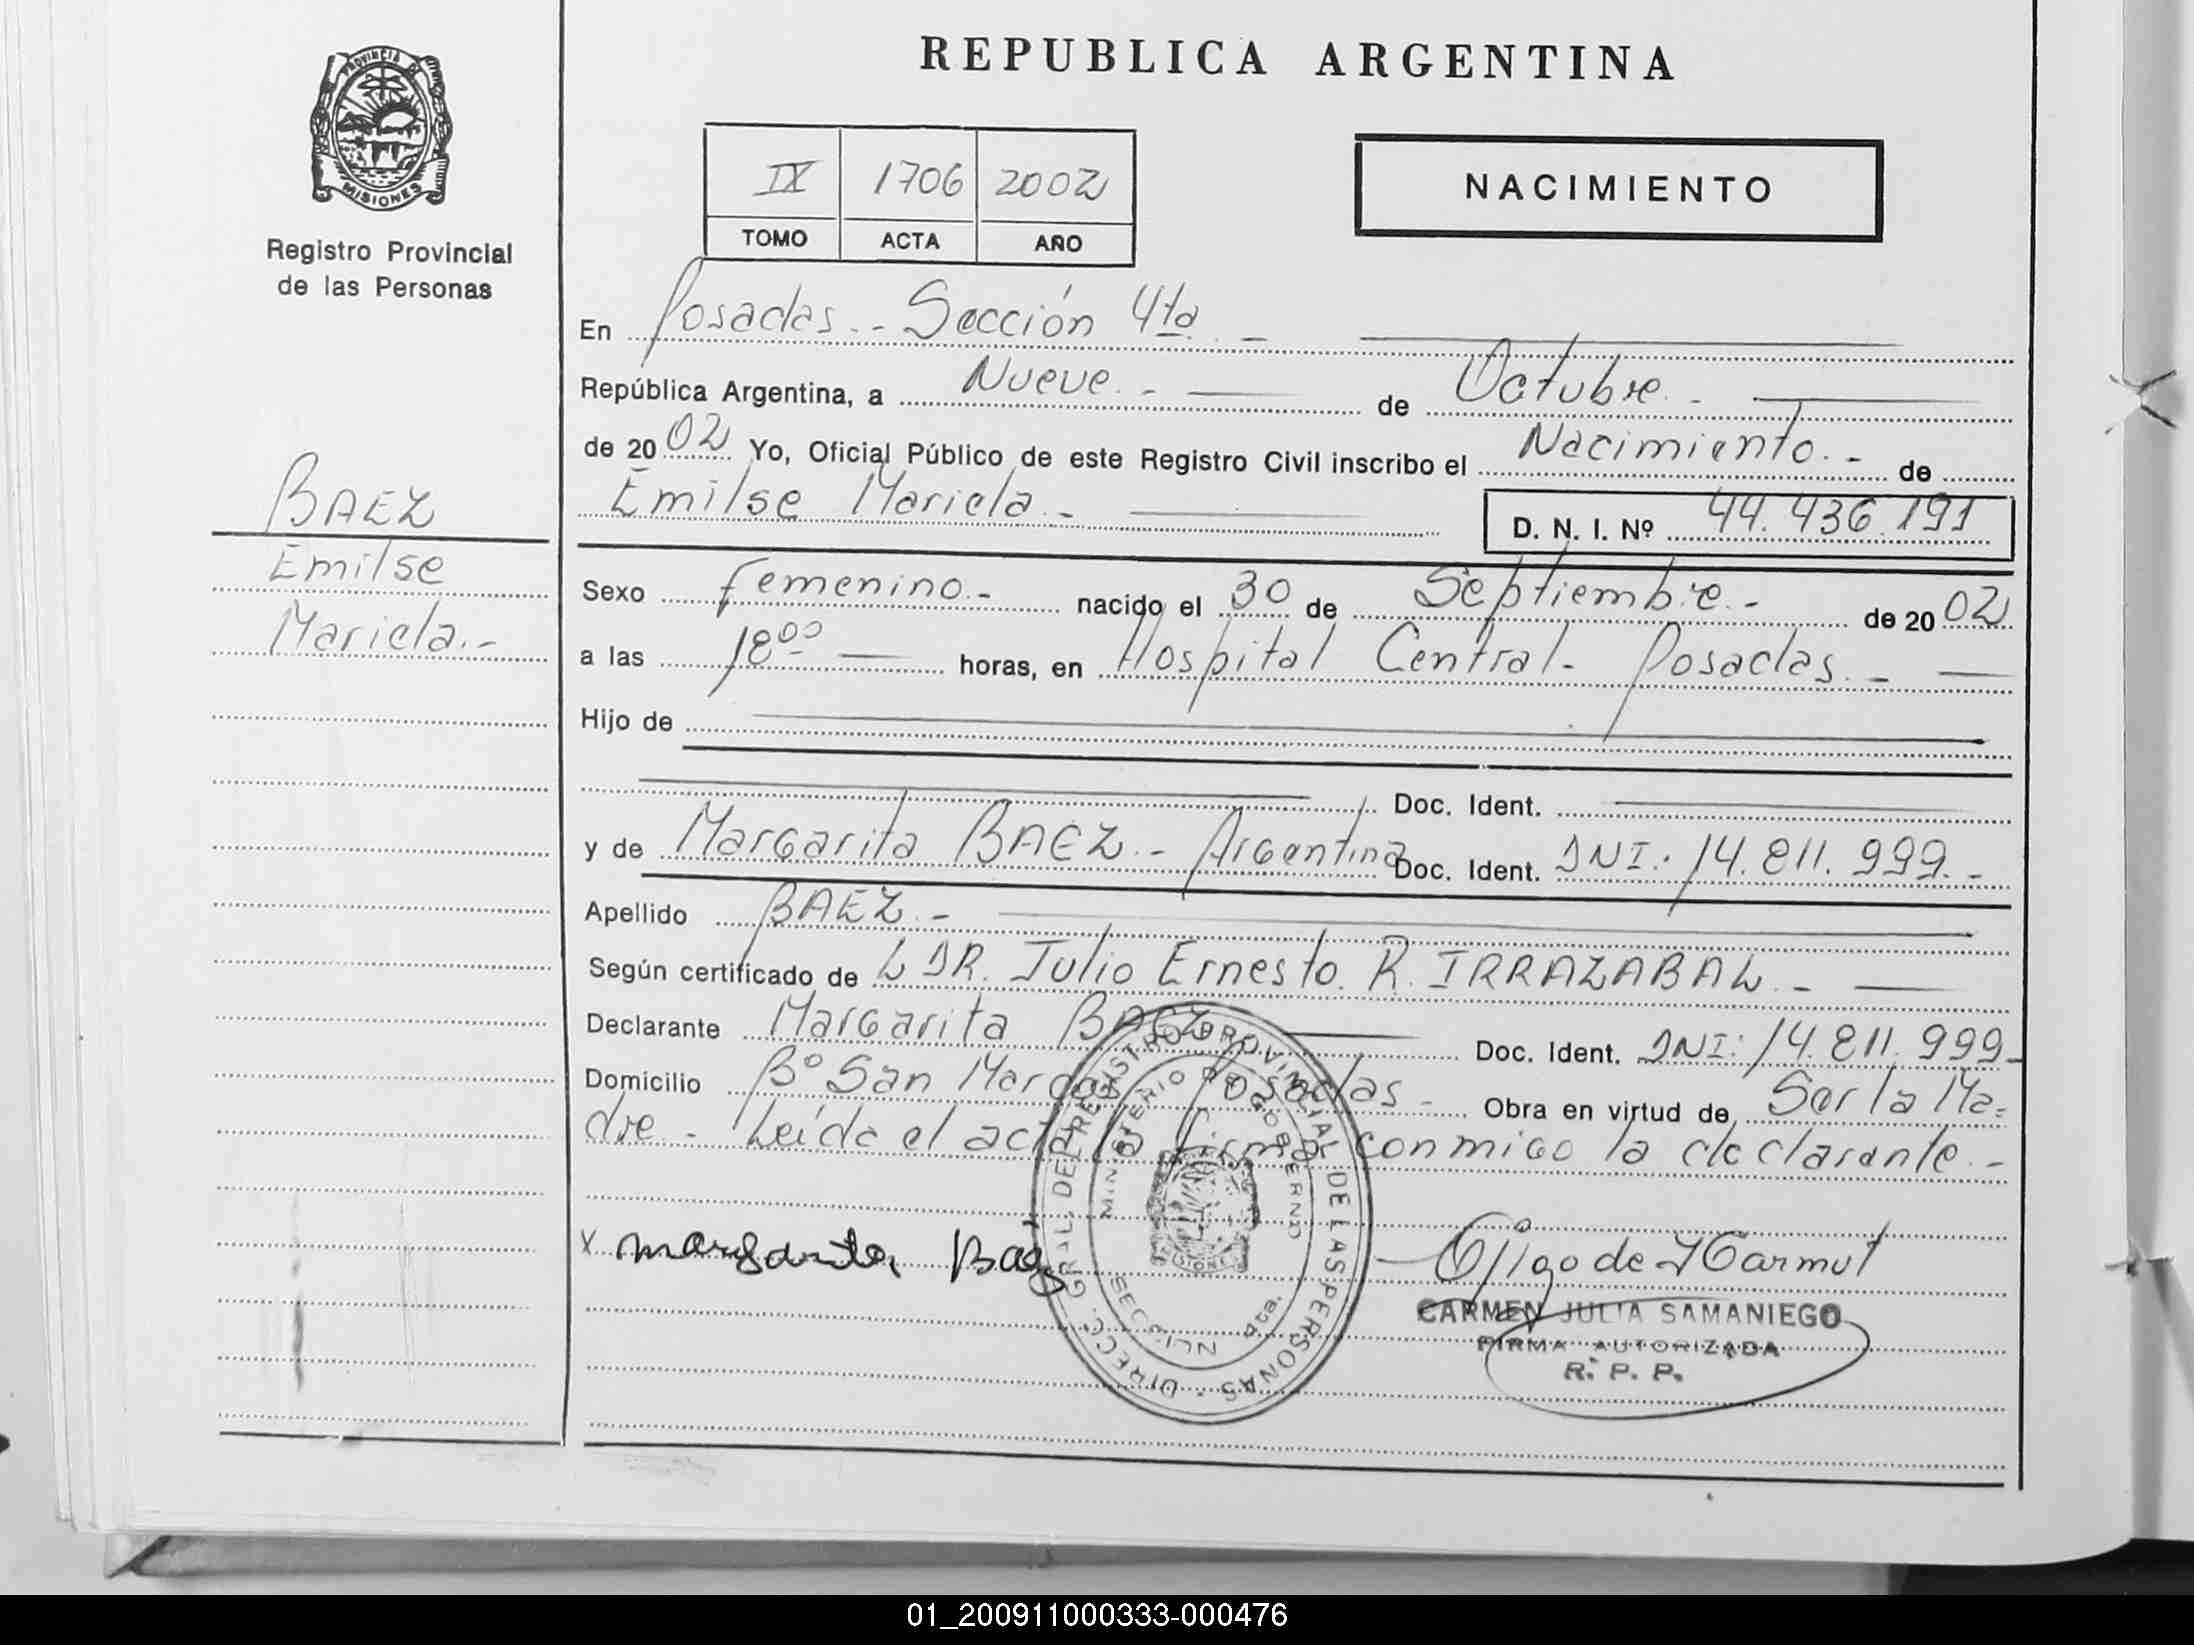 REPUBLICA ARGENTINA
PROVINCIA DE
MISIONES
Registro Provincial
de las Personas
IX 1706 2002
TOMO ACTA AÑO
NACIMIENTO
En Posadas.- Sección 4ta. -
República Argentina, a Nueve.- de Octubre.-
de 2002 Yo, Oficial Público de este Registro Civil inscribo el Nacimiento.- de
Emilse Mariela.- D. N. I. Nº 44.436.191
BAEZ
Emilse
Mariela.-
Sexo femenino.- nacido el 30 de Septiembre.- de 2002
a las 18⁰⁰ horas, en Hospital Central- Posadas.-
Hijo de
Doc. Ident.
y de Margarita BAEZ.- Argentina Doc. Ident. DNI: 14.811.999.-
Apellido BAEZ.-
Según certificado de L DR. Julio Ernesto. R. IRRAZABAL.-
Declarante Margarita BAEZ Doc. Ident. DNI: 14.811.999-
Domicilio Bº San Marcos Posadas- Obra en virtud de Ser la Ma=
dre.- Leída el acta la firma conmigo la declarante.-
X Margarita Baéz
DIRECC. GRAL. DEL REGISTRO PROVINCIAL DE LAS PERSONAS
MINISTERIO DE GOBIERNO
SECCION 4ta.
MISIONES
CARMEN JULIA SAMANIEGO
FIRMA AUTORIZADA
R. P. P.
01_200911000333-000476